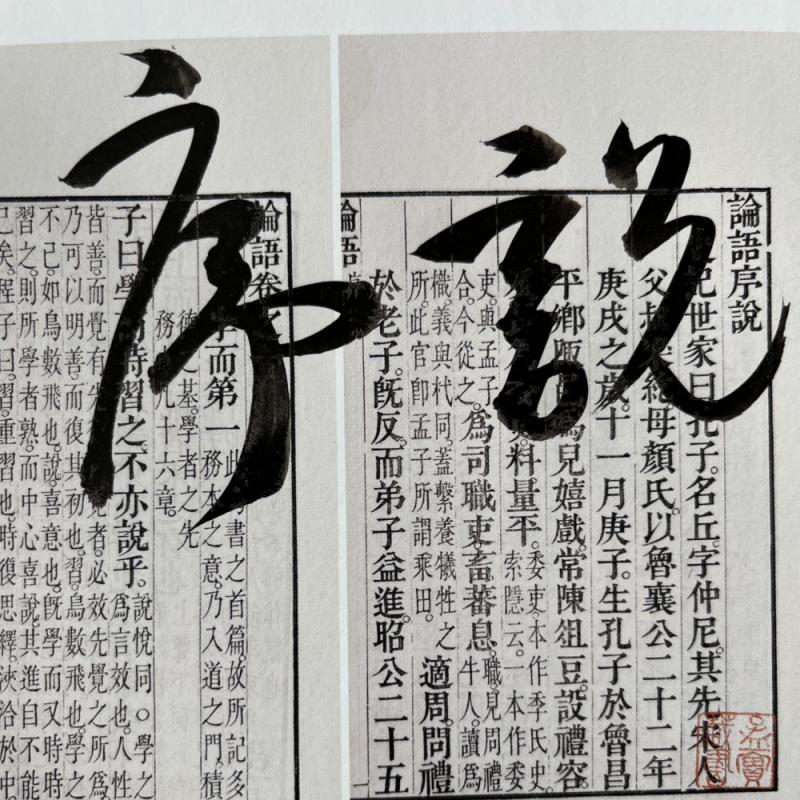 序
說
論語序說
記世家曰。孔子。名丘。字仲尼。其先宋人
父叔梁紇。母顏氏。以魯襄公二十二年
庚戌之歲。十一月庚子。生孔子於魯昌
平鄉陬邑。爲兒嬉戲。常陳俎豆。設禮容。
料量平。委吏。本作季氏史。
索隱云。一本作委
吏。與孟子
合。今從之。爲司職吏。畜蕃息。職。見周禮
牛人。讀爲
樴。義與杙同。蓋繫養犧牲之
所。此官卽孟子所謂乘田。適周。問禮
於老子。旣反。而弟子益進。昭公二十五
論語
論語卷之
學而第一 此爲書之首篇故所記多
務本之意。乃入道之門。積
德之基。學者之先
務凡十六章。
子曰。學而時習之。不亦說乎。說悅同。○學之
爲言效也。人性
皆善。而覺有先後覺者。必效先覺之所爲。
乃可以明善。而復其初也。習。鳥數飛也。學之
不已。如鳥數飛也。說。喜意也。旣學而又時時
習之。則所學者熟。而中心喜說。其進自不能
已矣。程子曰。習。重習也。時復思繹。浹洽於中